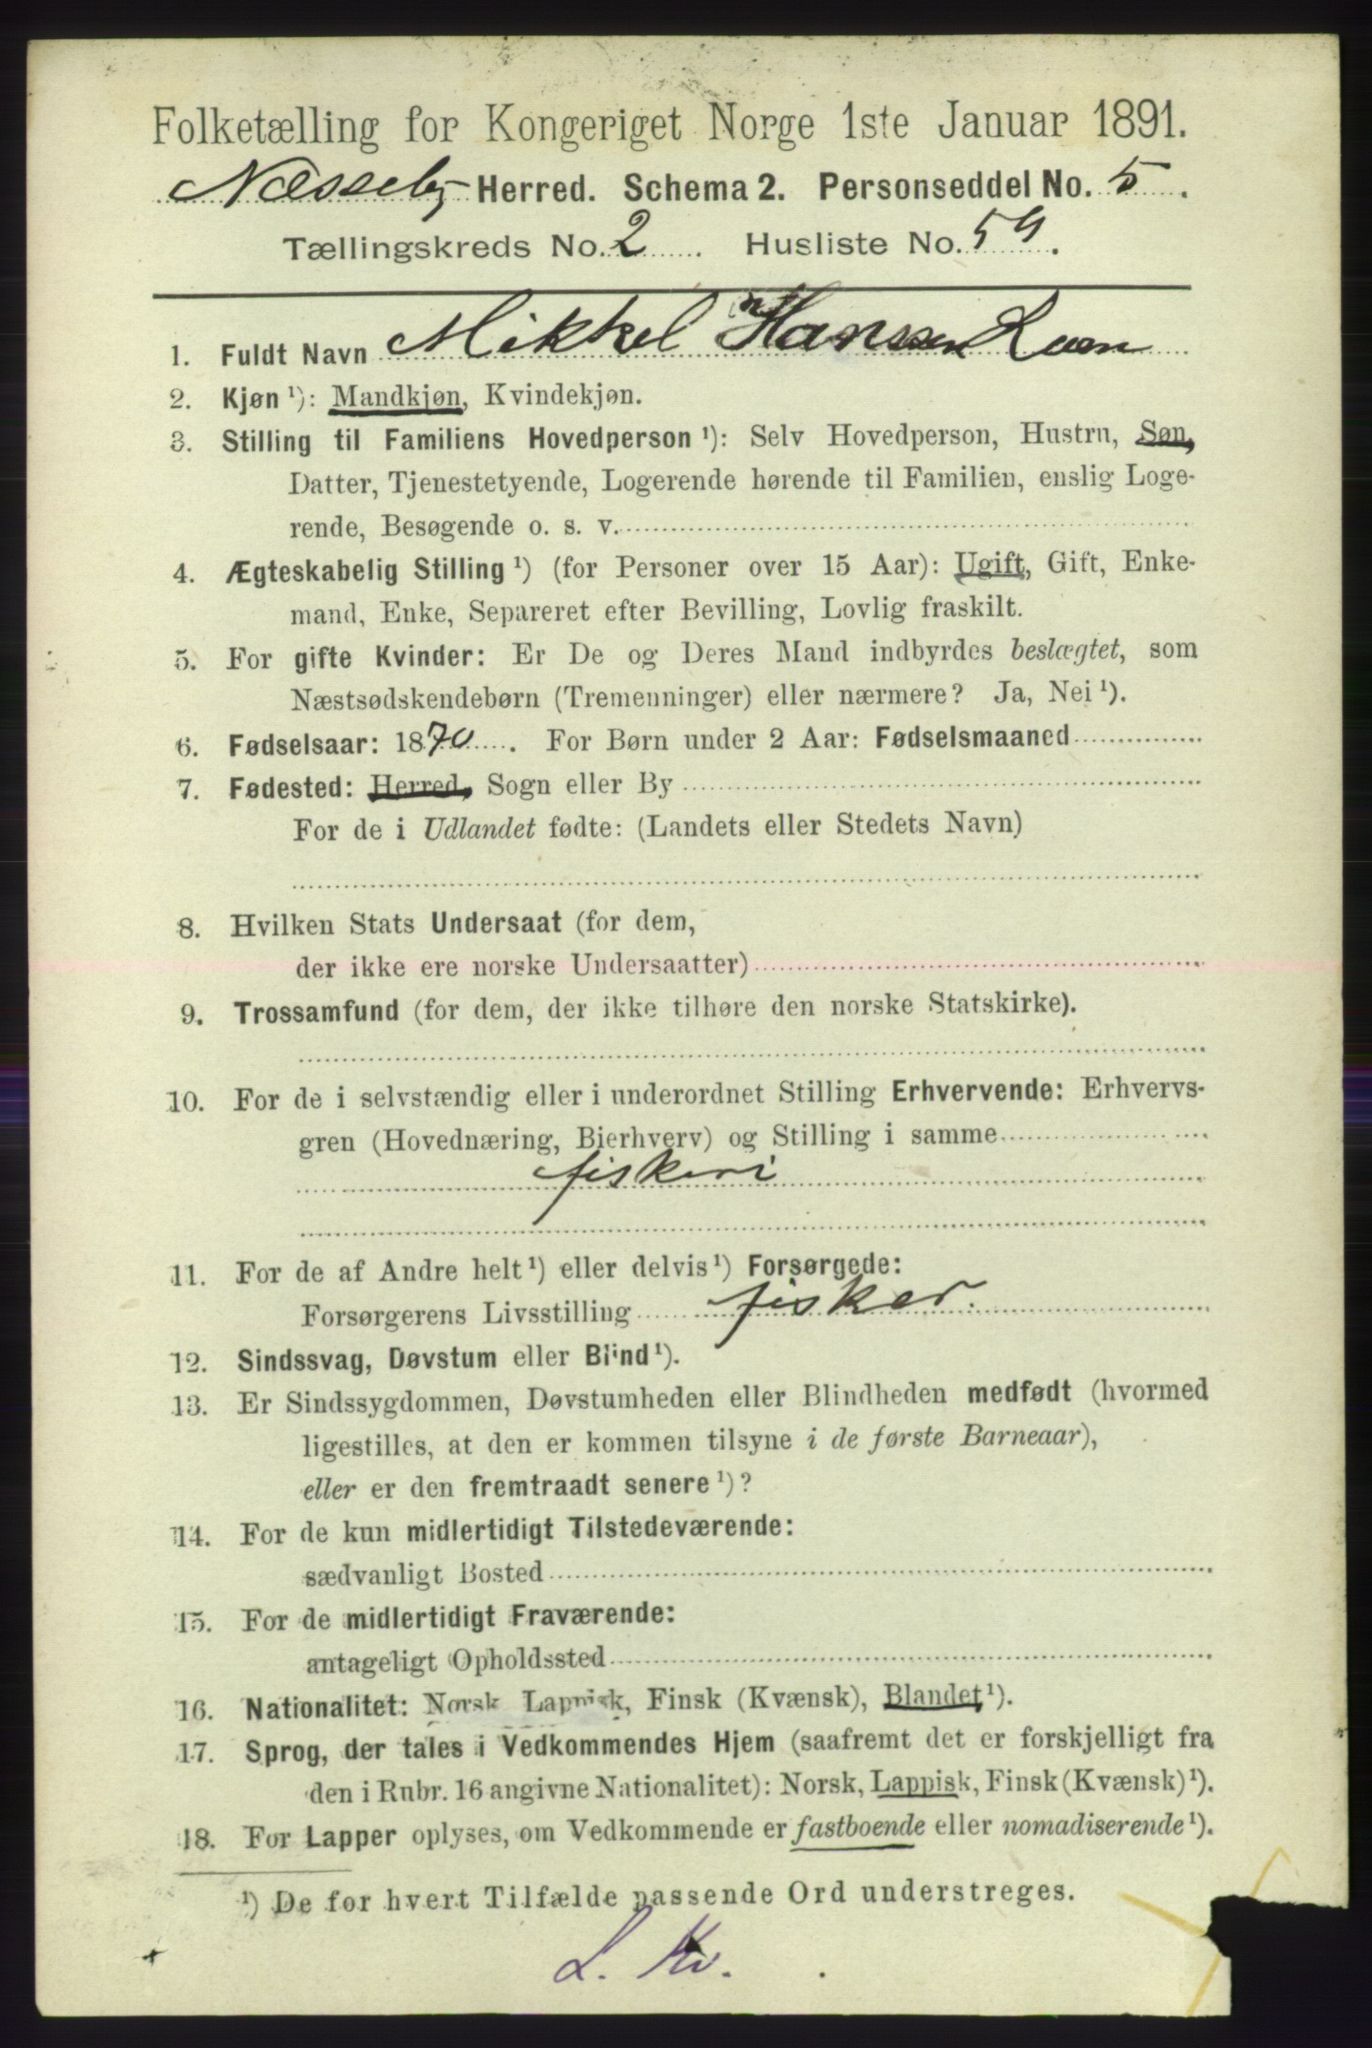 Folketælling for Kongeriget Norge 1ste Januar 1891.
Næsseby Herred. Schema 2. Personseddel No. 5.
Tællingskreds No. 2 Husliste No. 59.
1. Fuldt Navn Mikkel Hanssen
2. Kjøn ¹): Mandkjøn, Kvindekjøn.
3. Stilling til Familiens Hovedperson ¹): Selv Hovedperson, Hustru, Søn,
Datter, Tjenestetyende, Logerende hørende til Familien, enslig Loge-
rende, Besøgende o. s. v.
4. Ægteskabelig Stilling ¹) (for Personer over 15 Aar): Ugift, Gift, Enke-
mand, Enke, Separeret efter Bevilling, Lovlig fraskilt.
5. For gifte Kvinder: Er De og Deres Mand indbyrdes beslægtet, som
Næstsødskendebørn (Tremenninger) eller nærmere? Ja, Nei ¹).
6. Fødselsaar: 1870. For Børn under 2 Aar: Fødselsmaaned
7. Fødested: Herred, Sogn eller By
For de i Udlandet fødte: (Landets eller Stedets Navn)
8. Hvilken Stats Undersaat (for dem,
der ikke ere norske Undersaatter)
9. Trossamfund (for dem, der ikke tilhøre den norske Statskirke).
10. For de i selvstændig eller i underordnet Stilling Erhvervende: Erhvervs-
gren (Hovednæring, Bierhverv) og Stilling i samme
fiskeri
11. For de af Andre helt ¹) eller delvis ¹) Forsørgede:
Forsørgerens Livsstilling fisker.
12. Sindssvag, Døvstum eller Blind ¹).
13. Er Sindssygdommen, Døvstumheden eller Blindheden medfødt (hvormed
ligestilles, at den er kommen tilsyne i de første Barneaar),
eller er den fremtraadt senere ¹)?
14. For de kun midlertidigt Tilstedeværende:
sædvanligt Bosted
15. For de midlertidigt Fraværende:
antageligt Opholdssted
16. Nationalitet: Norsk Lappisk, Finsk (Kvænsk), Blandet ¹).
17. Sprog, der tales i Vedkommendes Hjem (saafremt det er forskjelligt fra
den i Rubr. 16 angivne Nationalitet): Norsk, Lappisk, Finsk (Kvænsk) ¹).
18. For Lapper oplyses, om Vedkommende er fastboende eller nomadiserende ¹).
¹) De for hvert Tilfælde passende Ord understreges.
L. Kv.